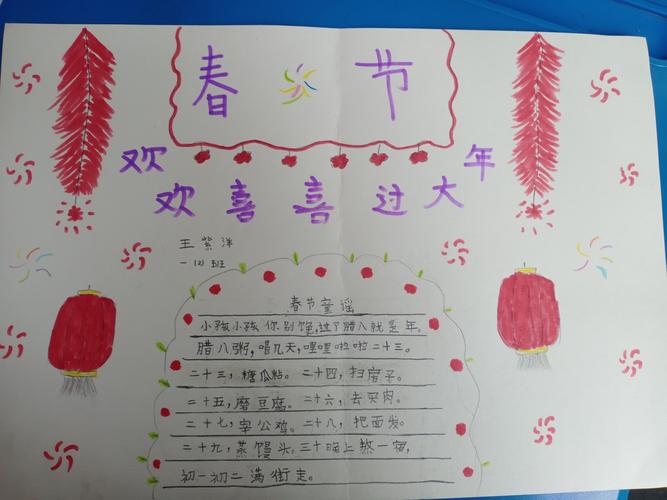 春节
欢欢喜喜过大年
王紫洋
一(2)班
春节童谣
小孩小孩你别馋,过了腊八就是年。
腊八粥,喝几天,哩哩啦啦二十三。
二十三,糖瓜粘。二十四,扫房子。
二十五,磨豆腐。二十六,去买肉。
二十七,宰公鸡。二十八,把面发。
二十九,蒸馒头,三十晚上熬一宿,
初一初二满街走。